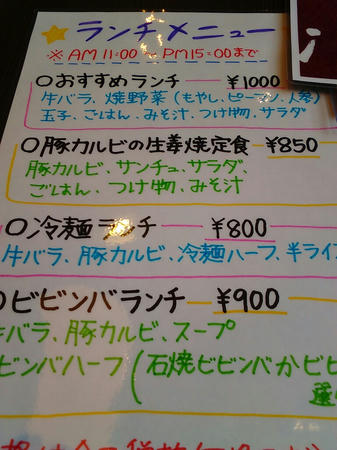 ランチメニュー
※AM11:00～PM15:00まで
○おすすめランチ ¥1000
牛バラ、焼野菜(もやし、ピーマン、人参)
玉子、ごはん、みそ汁、つけ物、サラダ
○豚カルビの生姜焼定食 ¥850
豚カルビ、サンチュ、サラダ、
ごはん、つけ物、みそ汁
○冷麺ランチ ¥800
牛バラ、豚カルビ、冷麺ハーフ、半ライ
○ビビンバランチ ¥900
牛バラ、豚カルビ、スープ
ビンバハーフ(石焼ビビンバかビビ
選